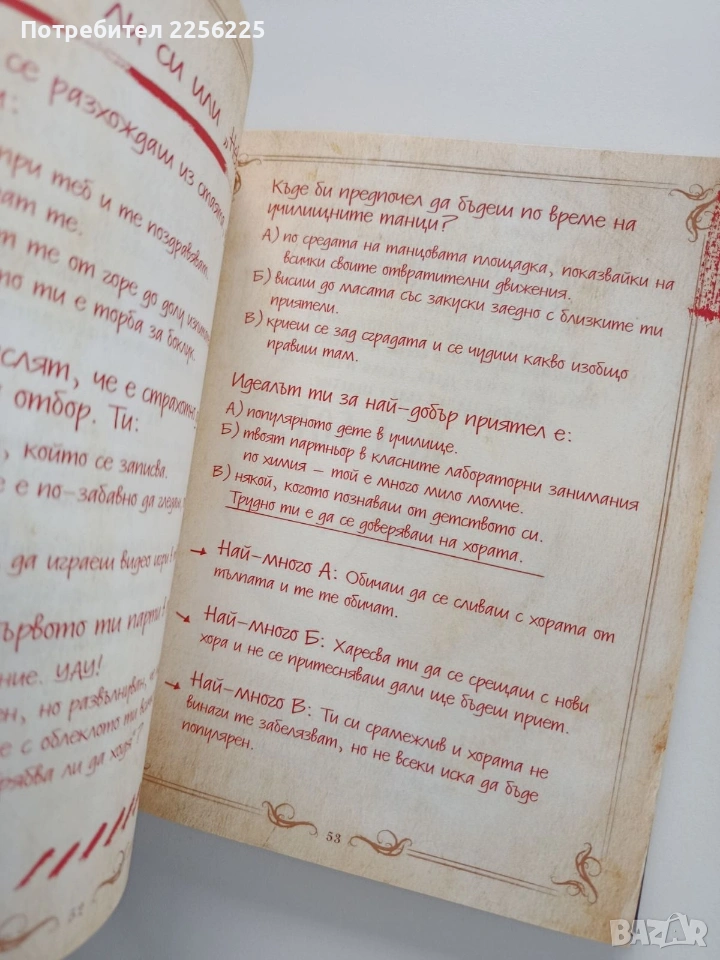 Потребител 2256225
ли си или „Не
се разхождаш из стаята
и:
при теб и те поздравяват.
ат те.
т те от горе до долу
то ти е торба за боклук.
слят, че е страхотн
отбор. Ти:
, който се записва.
е е по-забавно да гледаш
да играеш видео игри
ървото ти парти в
ние. УАУ!
ен, но развълнуван,
е с облеклото ти
рябва ли да ходя?
52
Къде би предпочел да бъдеш по време на
училищните танци?
А) по средата на танцовата площадка, показвайки на
всички своите отвратителни движения.
Б) висиш до масата със закуски заедно с близките ти
приятели.
В) криеш се зад сградата и се чудиш какво изобщо
правиш там.
Идеалът ти за най-добър приятел е:
А) популярното дете в училище.
Б) твоят партньор в класните лабораторни занимания
по химия – той е много мило момче.
В) някой, когото познаваш от детството си.
Трудно ти е да се доверяваш на хората.
Най-много А: Обичаш да се сливаш с хората от
тълпата и те те обичат.
Най-много Б: Харесва ти да се срещаш с нови
хора и не се притесняваш дали ще бъдеш приет.
Най-много В: Ти си срамежлив и хората не
винаги те забелязват, но не всеки иска да бъде
популярен.
53
BAZAR